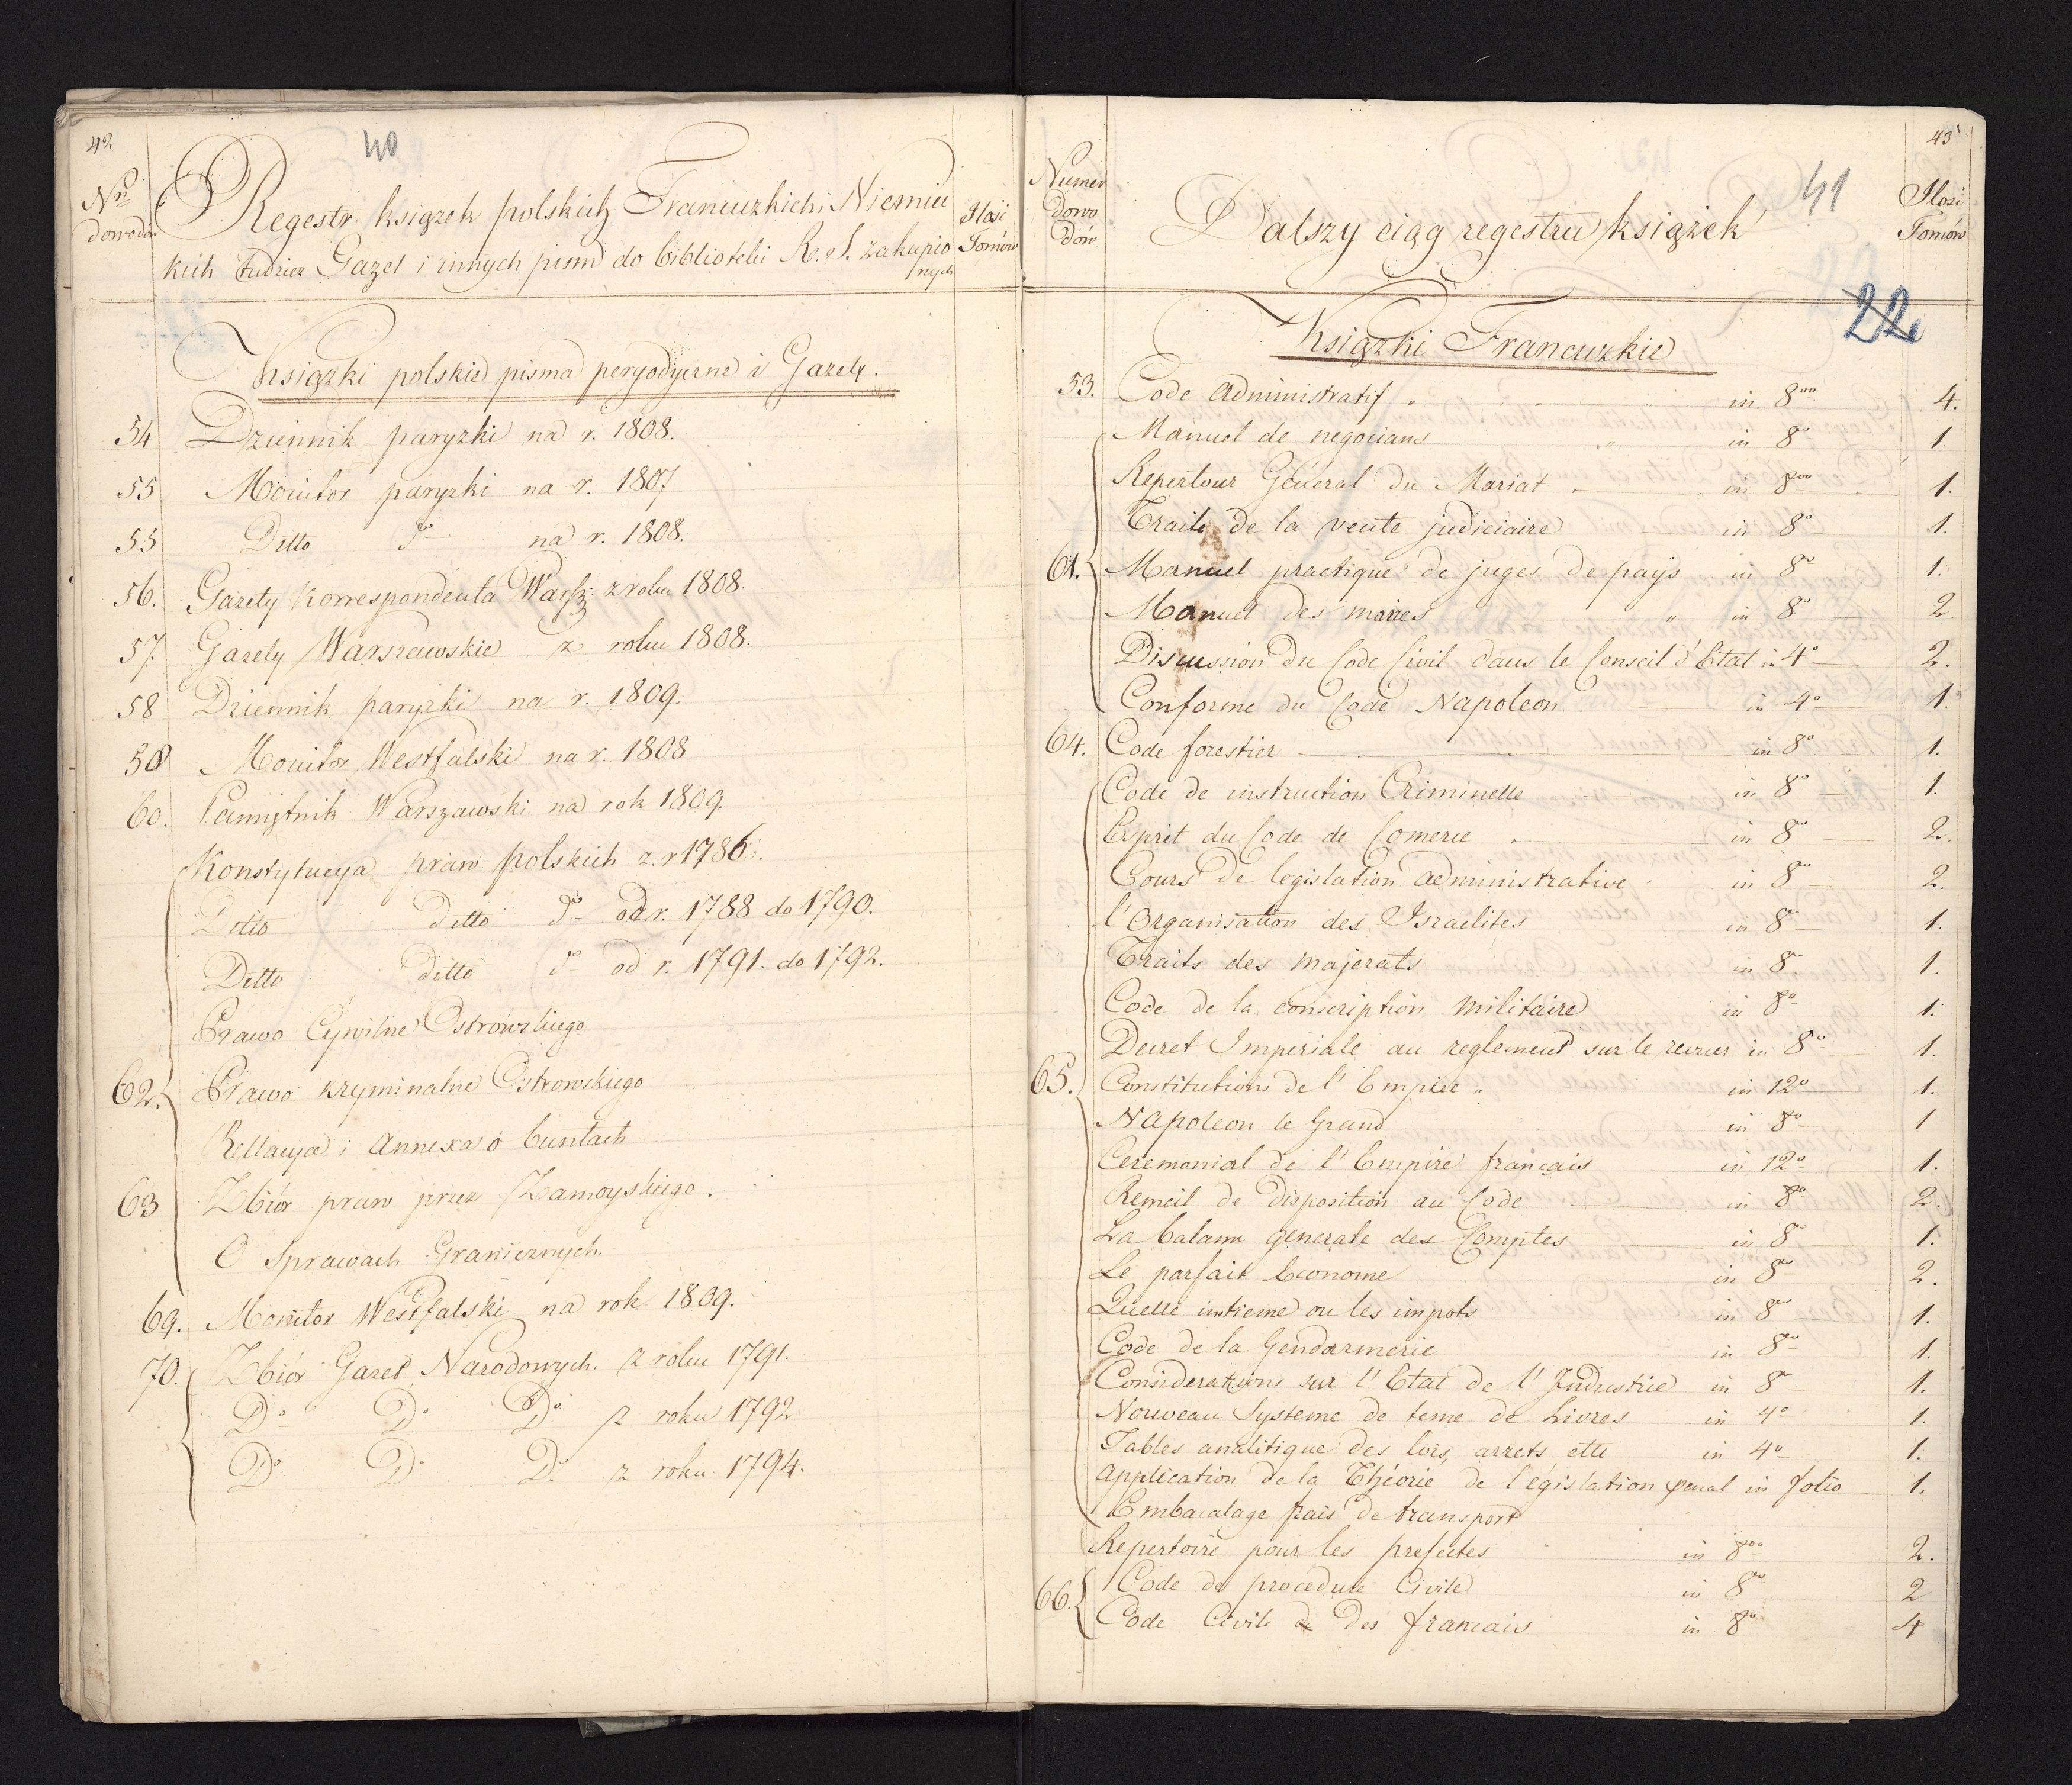 42
40
Nrꝰ
dowodó
Regestr książek polskich Francuzkich i Niemiec
kich tudzież Gazet i innych pism do biblioteki R. S. zakupio
nych
Ilość
Tomów
Książki polskie pisma peryodyczne i Gazety.
54 Dziennik paryzki na r. 1808.
55 Monitor paryzki na r. 1807
55 Ditto do na r. 1808.
56. Gazety Korrespondenta Warsz: z roku 1808.
57. Gazety Warszawskie z roku 1808.
58 Dziennik paryzki na r. 1809.
58 Monitor Westfalski na r. 1808
60. Pamiętnik Warszawski na rok 1809.
Konstytucya praw polskich z. r 1786.
Ditto Ditto do od r. 1788 do 1790.
Ditto ditto do od r. 1791. do 1792.
Prawo Cywilne Ostrowskiego
62. Prawo Kryminalne Ostrowskiego
Rellacya i Annexa o buntach
63 Zbiór praw przez Zamoyskiego.
O Sprawach Granicznych.
69. Monitor Westfalski na rok 1809.
70. Zbiór Gazet Narodowych. z roku 1791.
Do Do Do z roku 1792
Do Do Do z roku 1794.
43
41
Numer
dowo
dów
Dalszy ciąg regestru książek
Ilosi
Tomów
22
Książki Francuzkie
53. Code Administratif in 8vo 4.
Manuel de negocians in 8o 1.
Repertour Géneral du Mariat in 8vo 1.
Traite de la vente judiciaire in 8o 1.
61. Manuel practique de juges de pays in 8o 1.
Manuel des maires " in 8o 2
Discussion du Code Civil dans le Conseil d'Etat in 4o 2.
Conforme du Code Napoleon in 4o 1.
64. Code forestier in 8o 1.
Code de instruction Criminelle in 8o 1.
Esprit du Code de Comerce in 8o 2.
Cours de legislation administrative in 8o 2.
l'Organisation des Israelites in 8o 1.
Traits des majerats in 8o 1.
Code de la conscription militaire in 8o 1.
Decret Imperiale au reglement sur le revues in 8o 1.
65. Constitutions de l'Empire " in 12o 1.
Napoleon le Grand in 8o 1
Ceremonial de l'Empire français in 12o 1.
Remeil de Disposition au Code in 8o 2.
La balanse generale des Comptes in 8o 1.
Le parfait Econome in 8o 2.
Quelle intieme ou les impots in 8o 1.
Code de la Gendarmerie in 8o 1.
Considerations sur l'Etat de l'Industrie in 8o 1.
Nouveau Systeme de teme de Livres in 4o 1.
Tables analitique des lois, arrets ette in 4o 1.
Application de la Théorie de législation penal in folio 1.
Embacalage frais de transport
Repertoire pour les prefectes in 8vo 2.
66. Code de procedure Civile in 8o 2
Code Civile de Des francais in 8o 4